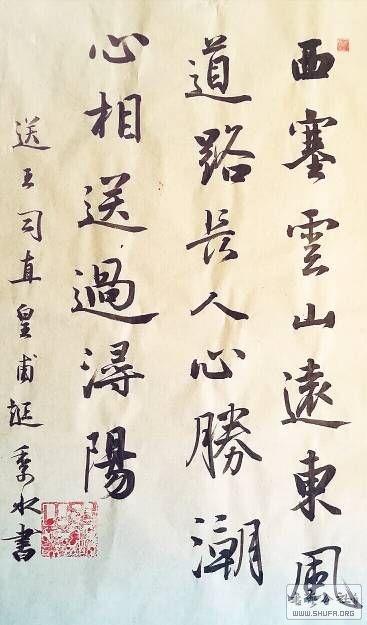 西塞雲山遠東風
道路長人心勝潮
心相送過潯陽
送王司直皇甫水書
WWW.SHUFA.ORG